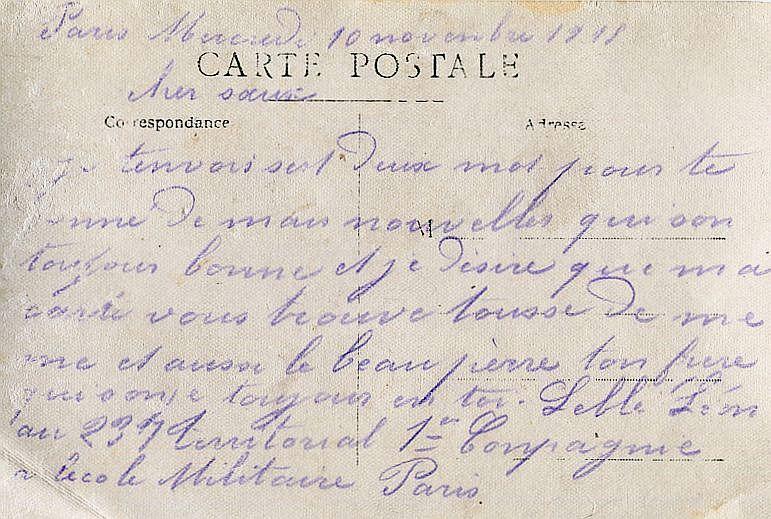 Paris Mercredi 10 novembre
CARTE POSTALE
Cher saux
Correspondance
Adresse
je tenvois set deux mot pour te
donne de mais nouvelles qui son
toujour bonne et je desire que ma
carte vous trouve tousse de me
me et aussi le beau pierre ton frere
qui sonje toujour en toi. Leblé Léon
au territorial 1ere Compagnie
a lecole Militaire Paris